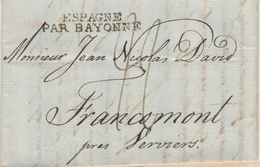 ESPAGNE
PAR BAYONNE
Monsieur Jean Nicolas David
Francomont
près Verviers.